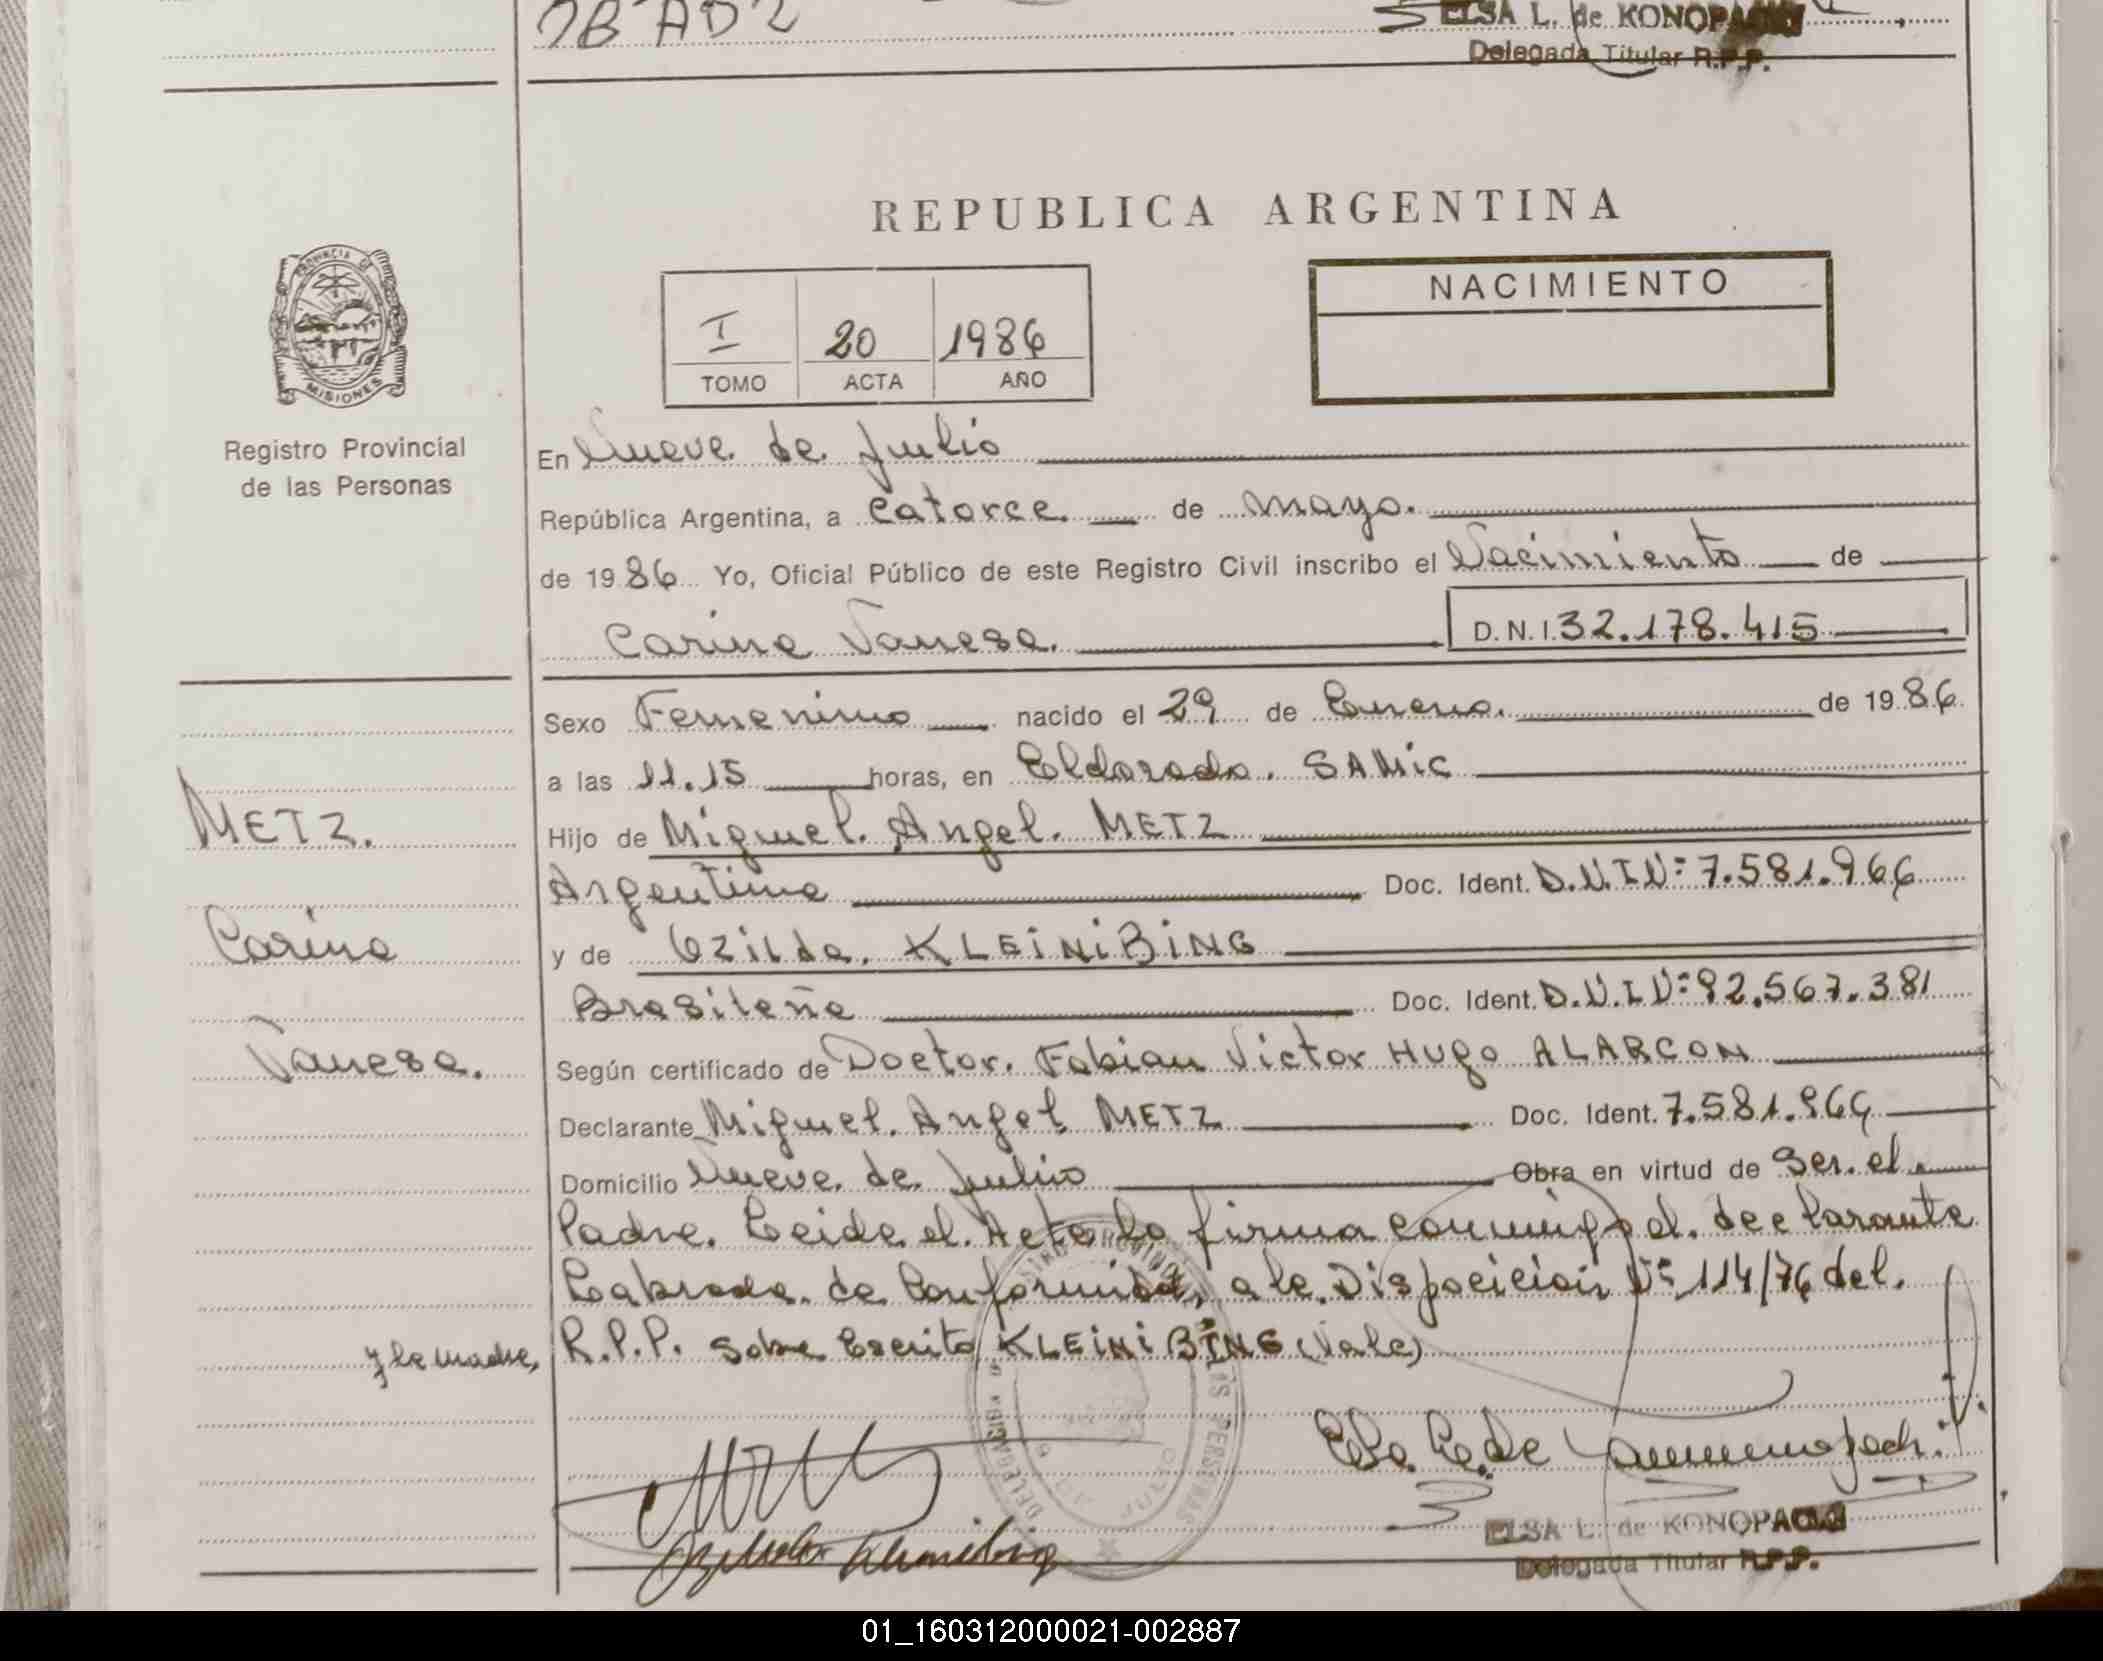 ELSA L. de KONOPACKI
Delegada Titular R.P.P.
REPUBLICA ARGENTINA
PROVINCIA DE
MISIONES
Registro Provincial
de las Personas
I 20 1986
TOMO ACTA AÑO
NACIMIENTO
En Nueve de Julio
República Argentina, a Catorce de mayo.
de 1986 Yo, Oficial Público de este Registro Civil inscribo el Nacimiento de
Carina Vanesa. D.N.I. 32.178.415
Sexo Femenino nacido el 29 de Enero. de 1986
a las 11.15 horas, en Eldorado. SAMic
METZ.
Hijo de Miguel. Angel. METZ
Argentina Doc. Ident. D.N.I N: 7.581.966
Carina
y de Ozilda. KLEiNiBiNG
Brasileña Doc. Ident. D.N.I N: 92.567.381
Vanesa.
Según certificado de Doctor. Fabian Victor HUgo ALARCON
Declarante Miguel. Angel METZ Doc. Ident. 7.581.966
Domicilio Nueve de Julio Obra en virtud de Ser. el
Padre. Leida el. Acta la firma conmigo el. declarante
Labrada. de Conformidad, a la Disposicion Nº 114/76 del.
y la madre, R.P.P. Sobre Escrito KLEiNiBiNG (Vale)
ELSA L. de KONOPACKI
Delegada Titular R.P.P.
01_160312000021-002887